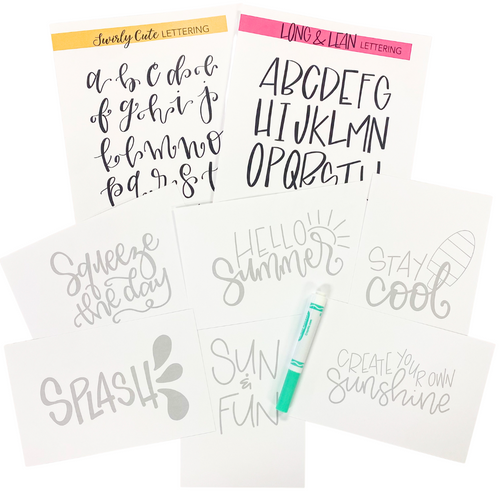 Swirly Cute LETTERING
a b c d e
f g h i j
k l m n o
p q r s t
LONG & LEAN LETTERING
ABCDEFG
HIJKLMN
OPQRSTU
Squeeze
the day
HELLO
Summer
STAY
cool
SPLASH
SUN
&
FUN
CREATE YOUR OWN
Sunshine